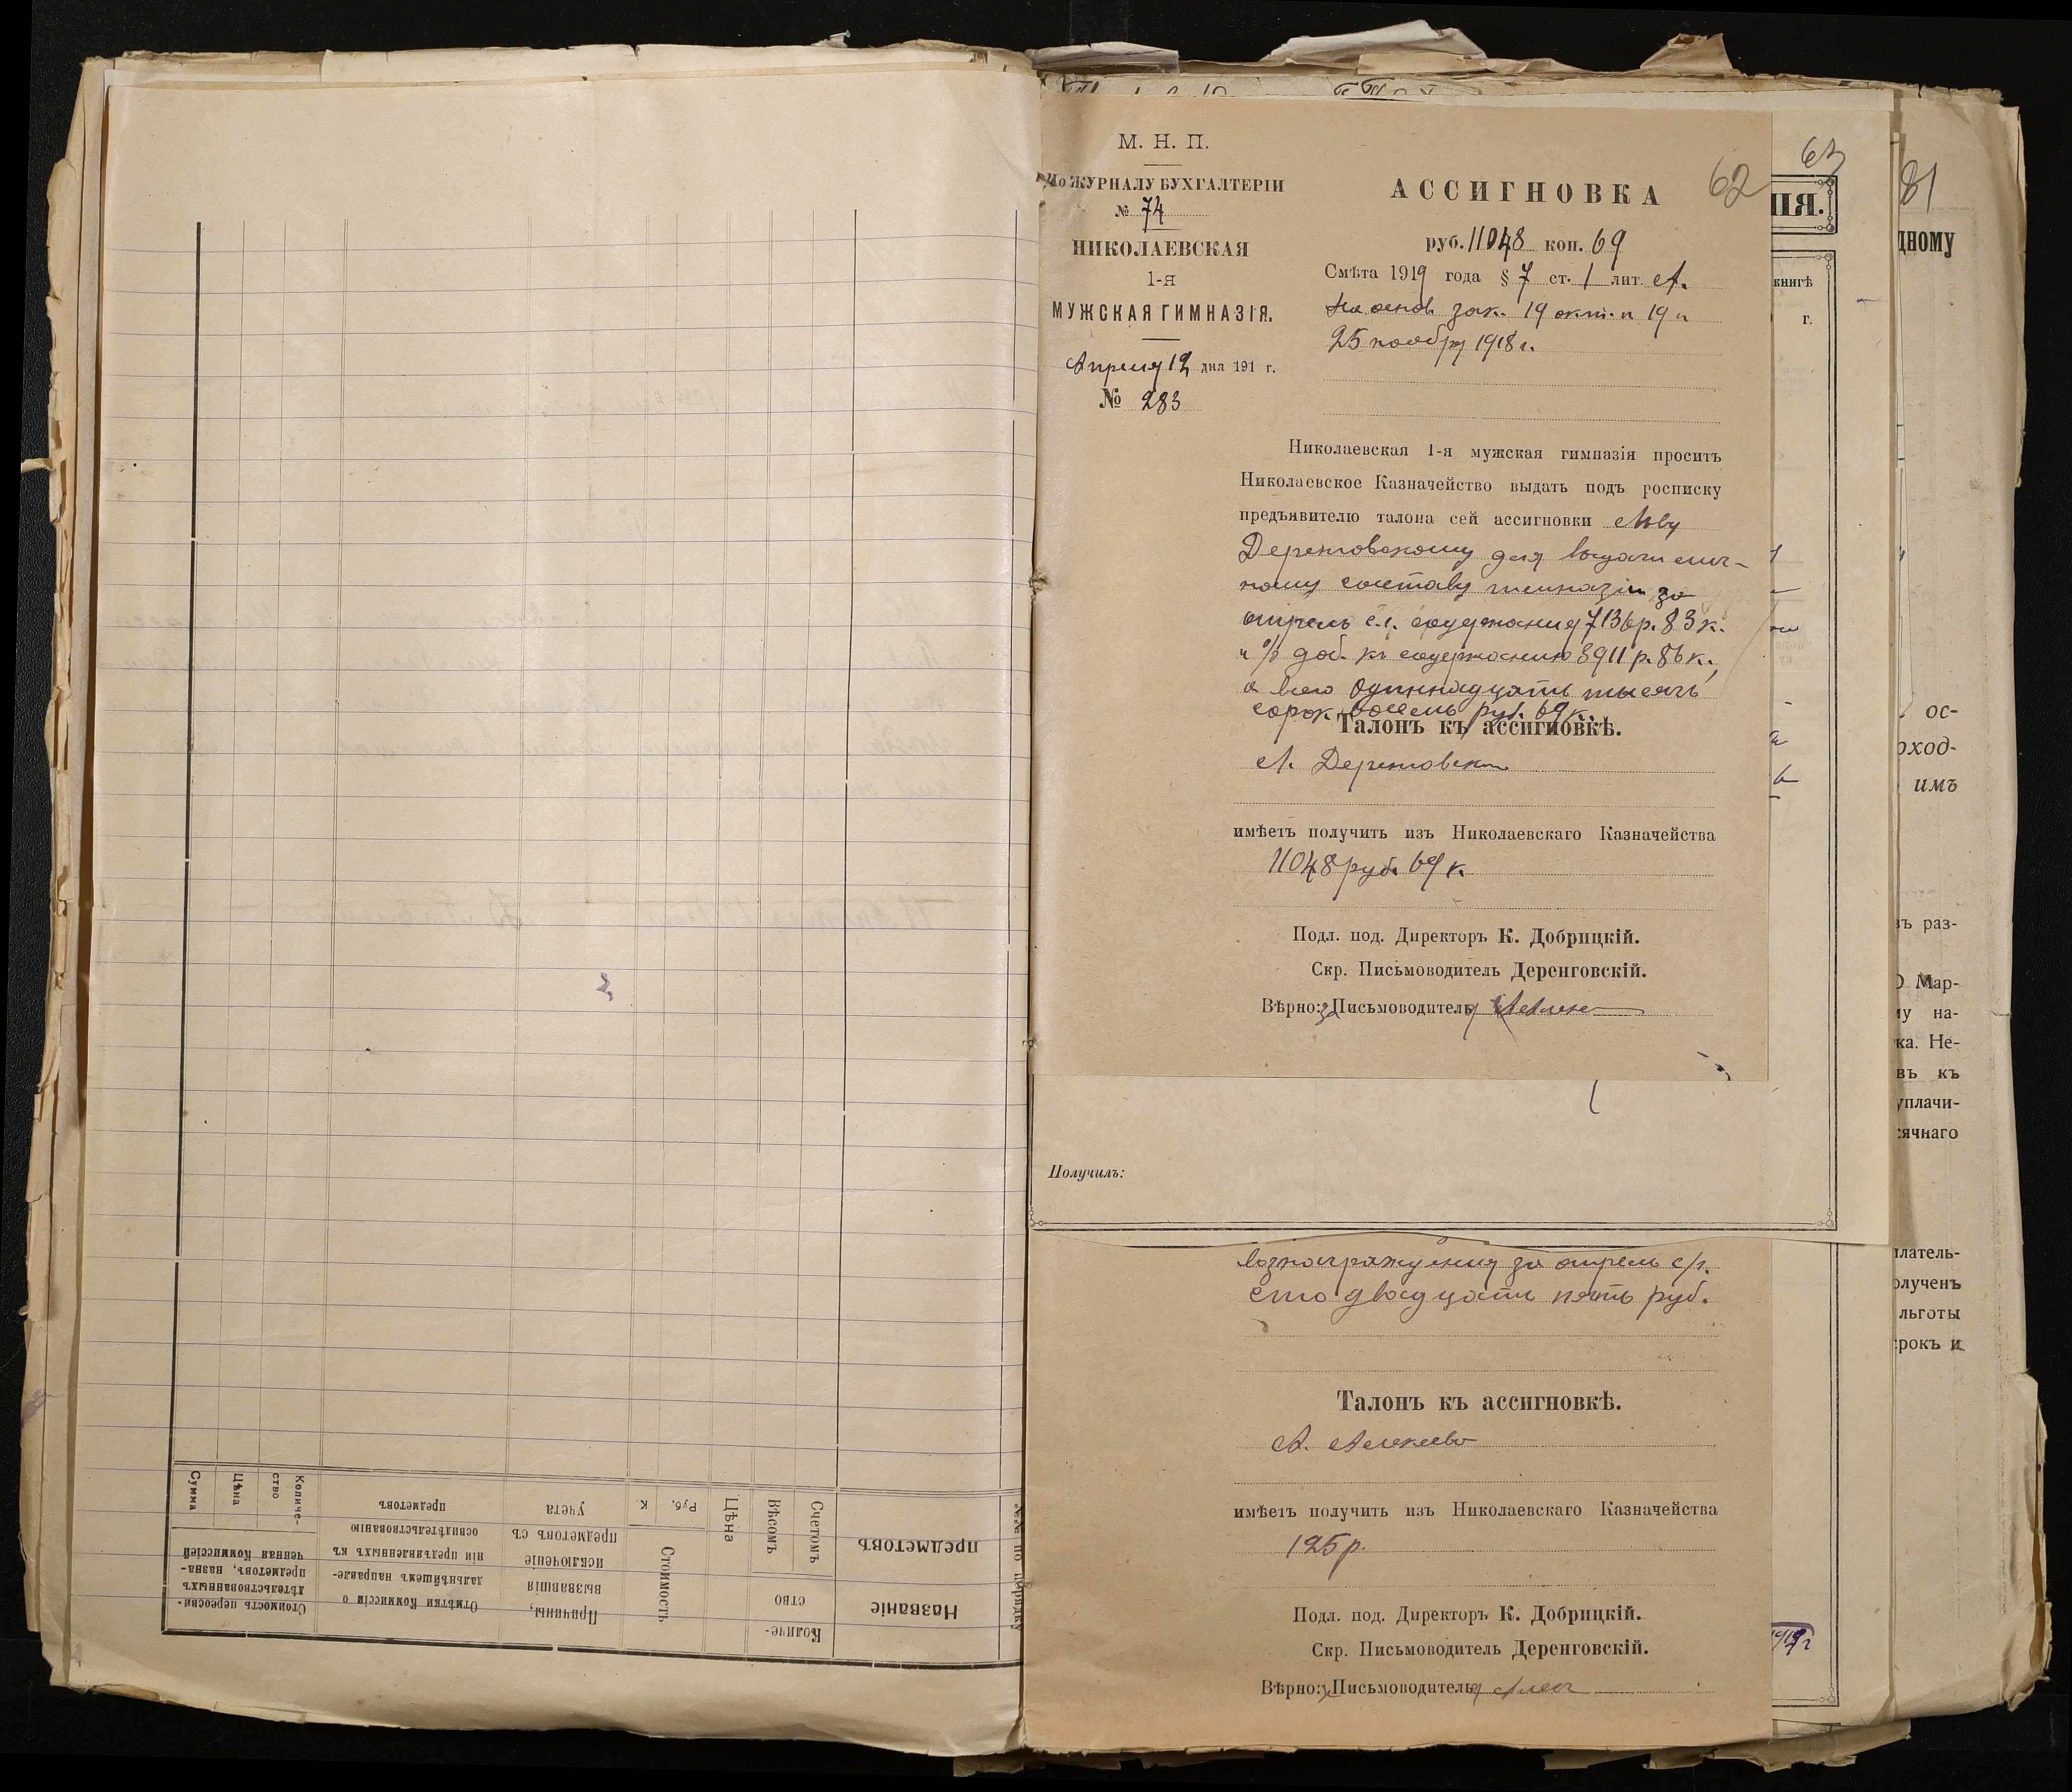 М. Н. П.
По ЖУРНАЛУ БУХГАЛТЕРІИ
№ 74
НИКОЛАЕВСКАЯ
1-я
МУЖСКАЯ ГИМНАЗІЯ.
Апреля 12 дня 191 г.
№ 283
62
АССИГНОВКА
руб. 11048 коп. 69
Смѣта 1919 года § 7 ст. 1 лит. А.
На основ. зак. 19 окт. и 19 и
25 ноября 1918 г.
Николаевская 1-я мужская гимназія проситъ
Николаевское Казначейство выдать подъ росписку
предъявителю талона сей ассигновки Льву
Деренговскому для выдачи лич-
ному составу гимназіи за
апрель с.г. содержания 7136 р. 83 к.
и % доб. къ содержанию 3911 р. 86 к.,
а всего одиннадцать тысячъ
сорок восемь руб. 69 к.
Талонъ къ ассигновкѣ.
Л. Деренговский
имѣетъ получить изъ Николаевскаго Казначейства
11048 руб. 69 к.
Подл. под. Директоръ К. Добрицкій.
Скр. Письмоводитель Деренговскій.
Вѣрно: за Письмоводителя
Получилъ:
вознаграждения за апрель с/г.
сто двадцать пять руб.
Талонъ къ ассигновкѣ.
А. Алексеева
имѣетъ получить изъ Николаевскаго Казначейства
125 р.
Подл. под. Директоръ К. Добрицкій.
Скр. Письмоводитель Деренговскій.
Вѣрно: Письмоводителя
63
ІЯ.
книгѣ
г.
81
дному
ос-
оход-
имъ
въ раз-
Мар-
на-
ка. Не-
въ къ
уплачи-
сячнаго
платель-
олученъ
льготы
срокъ и
№№ по порядку
Названіе
предметовъ
Количе-
ство
Счетомъ
Вѣсомъ
Цѣна
Стоимость
Руб.
К
Причины,
вызвавшія
исключеніе
предметовъ съ
учета
Отмѣтки Комиссіи о
дальнѣйшемъ направле-
ніи предъявленныхъ къ
освидѣтельствованію
предметовъ
Стоимость переосви-
дѣтельствованныхъ
предметовъ, назна-
ченная Комиссіей
Количе-
ство
Цѣна
Сумма